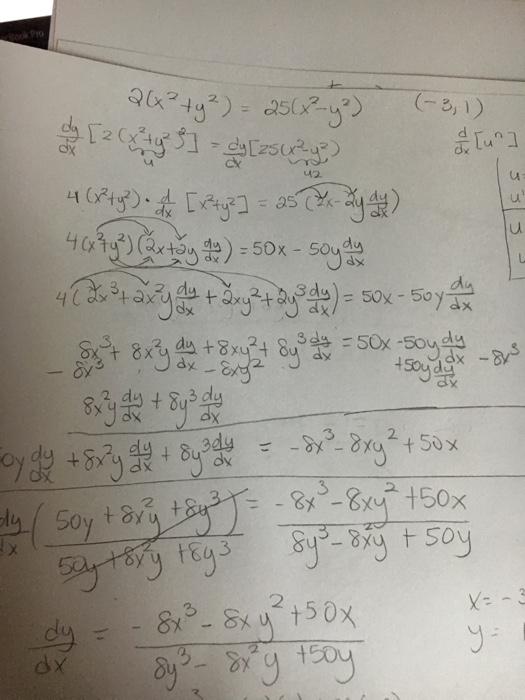 2(x²+y²) = 25(x²-y²) (-3,1)
dy/dx [2(x²+y²)²] = dy/dx [25(x²-y²) d/dx [uⁿ]
u u2
4(x²+y²) · d/dx [x²+y²] = 25(2x-2y dy/dx)
4(x²+y²)(2x+2y dy/dx) = 50x - 50y dy/dx
4(2x³+2x²y dy/dx + 2xy²+2y³ dy/dx) = 50x - 50y dy/dx
8x³+ 8x²y dy/dx + 8xy²+ 8y³ dy/dx = 50x - 50y dy/dx - 8x³
- 8x³ - 8xy² +50y dy/dx
8x²y dy/dx + 8y³ dy/dx
0y dy/dx + 8x²y dy/dx + 8y³ dy/dx = -8x³ - 8xy² + 50x
dy/dx (50y + 8x²y + 8y³)/(50y + 8x²y + 8y³) = (-8x³ - 8xy² + 50x)/(8y³ - 8x²y + 50y)
x = -3
dy/dx = (-8x³ - 8xy² + 50x)/(8y³ - 8x²y + 50y) y =